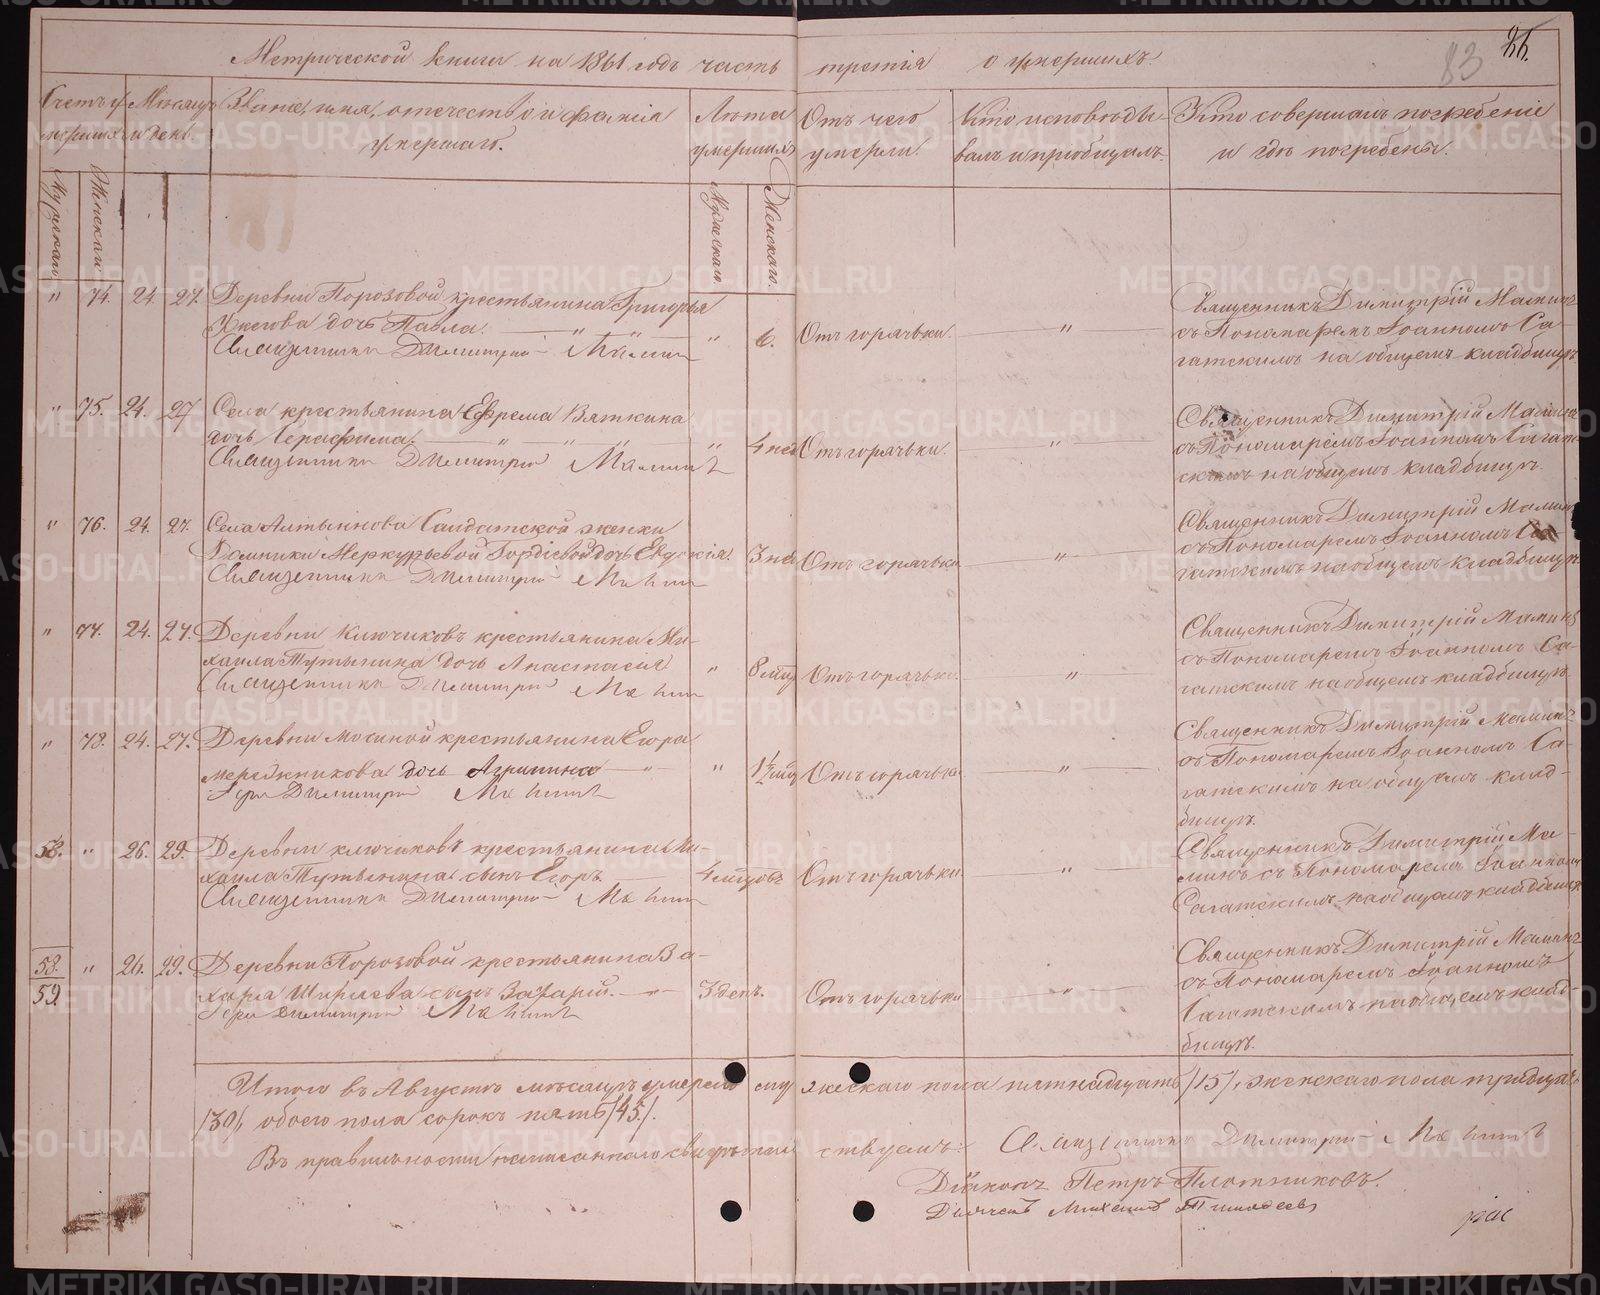 Метрической книги на 1861 годъ часть третія о умершихъ.
83 86.
Счетъ умершихъ
Мѣсяцъ и день.
Званіе, имя, отечество и фамилія умершаго.
Лѣта умершихъ
Отъ чего умерли.
Кто исповѣдывалъ и пріобщалъ.
Кто совершалъ погребеніе и гдѣ погребены.
Мужскаго.
Женскаго.
Мужескаго.
Женскаго.
" 74. 24. 27. Деревни Порозовой крестьянина Григорья
дочь Павла. " " " 6. Отъ горячьки. "
Священникъ Димитрій Маминъ
Священникъ Димитрій Маминъ
съ Пономаремъ Іоанномъ Са-
гатскимъ на общемъ кладбищѣ
" 75. 24. 27 Села крестьянина Ефрема Вяткина
дочь Серафима. " " " " 4 нед Отъ горячьки. "
Священникъ Димитрій Маминъ
Священникъ Димитрій Маминъ
съ Пономаремъ Іоанномъ Сагат-
скимъ на общемъ кладбищѣ.
" 76. 24. 27. Села Алтынова Солдатской женки
Домники Меркурьевой Гордіевой дочь Евдокія. 3 нед Отъ горячьки "
Священникъ Димитрій Маминъ
Священникъ Димитрій Маминъ
съ Пономаремъ Іоанномъ Са-
гатскимъ на общемъ кладбищѣ
" 77. 24. 27. Деревни Ключиковъ крестьянина Ми-
хаила Тутынина дочь Анастасія " 8 мѣц Отъ горячьки. "
Священникъ Димитрій Маминъ
Священникъ Димитрій Маминъ
съ Пономаремъ Іоанномъ Са-
гатскимъ на общемъ кладбищѣ
" 78. 24. 27. Деревни Мосиной крестьянина Егора
Мережникова дочь Агрипина " " 1½ мѣц Отъ горячьки "
Іерей Димитрій Маминъ
Священникъ Димитрій Маминъ
съ Пономаремъ Іоанномъ Са-
гатскимъ на общемъ клад-
бищѣ.
58. " 26. 29. Деревни Ключиковъ крестьянина Ми-
хаила Тутынина сынъ Егоръ 4 мѣцовъ Отъ горячьки "
Священникъ Димитрій Маминъ
Священникъ Димитрій Ма-
минъ съ Пономаремъ Іоанномъ
Сагатскимъ на общемъ кладбищѣ
58. " 26. 29. Деревни Порозовой крестьянина За-
59 хара Ширяева сынъ Захарій. " 3 день. Отъ горячьки "
Іерей Димитрій Маминъ
Священникъ Димитрій Маминъ
съ Пономаремъ Іоанномъ
Сагатскимъ на общемъ клад-
бищѣ.
Итого въ Августѣ мѣсяцѣ умерло мужескаго пола пятнадцать /15/, женскаго пола тридцать
/30/, обоего пола сорокъ пять /45/.
Въ правильности написаннаго свидѣтельствуемъ: Священникъ Димитрій Маминъ
Діаконъ Петръ Плотниковъ.
Дьячекъ Михаилъ Тимофеевъ
METRIKI.GASO-URAL.RU